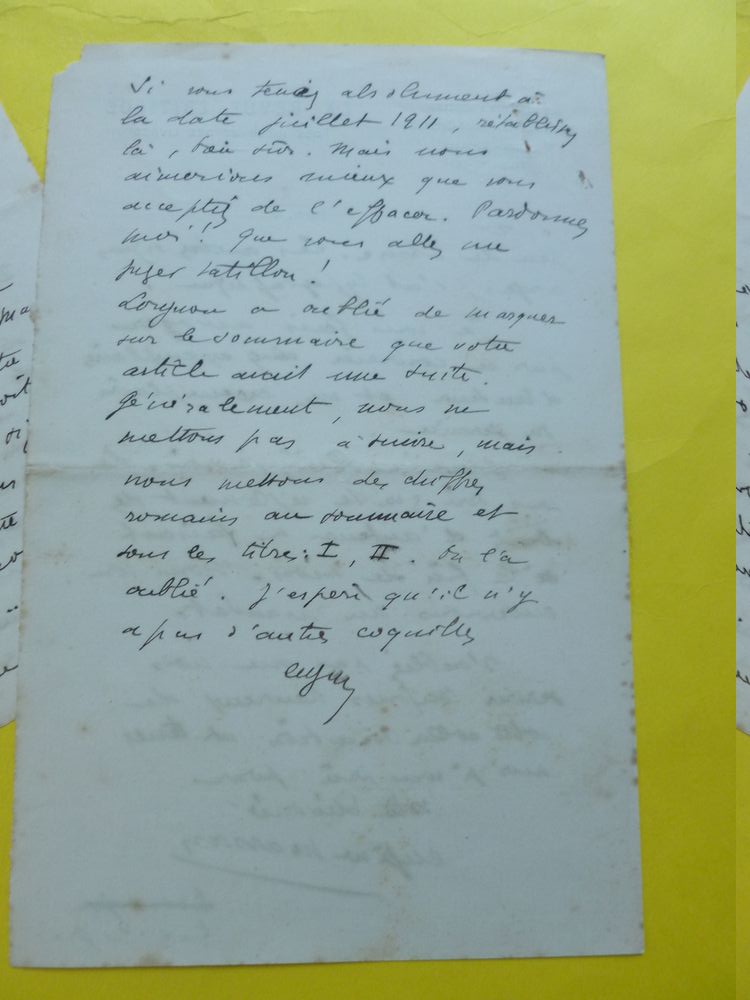 Si vous tenez absolument à
la date juillet 1911, rétablissez
là, bien sûr. Mais nous
aimerions mieux que vous
acceptiez de l'effacer. Pardonnez
moi! Que vous allez me
juger tatillon!
a oublié de marquer
sur le sommaire que votre
article avait une suite.
Généralement, nous ne
mettons pas à suivre, mais
nous mettons des chiffres
romains au sommaire et
sous les titres: I, II. On l'a
oublié. J'espère qu'il n'y
a pas d'autres coquilles